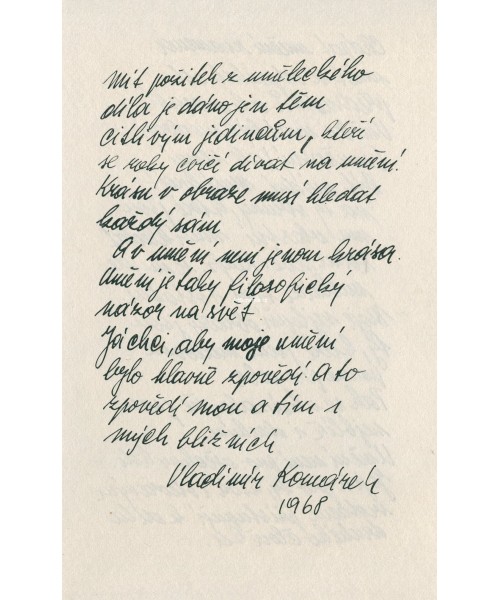 mít požitek z uměleckého
díla je dáno jen těm
citlivým jedincům, kteří
se roky cvičí dívat na umění.
Krásu v obraze musí hledat
každý sám
A v umění není jenom krása.
umění je taky filosofický
názor na svět.
Já chci, aby moje umění
bylo hlavně zpovědí. A to
zpovědí mou a tím i
mých bližních
Vladimír Komárek
1968